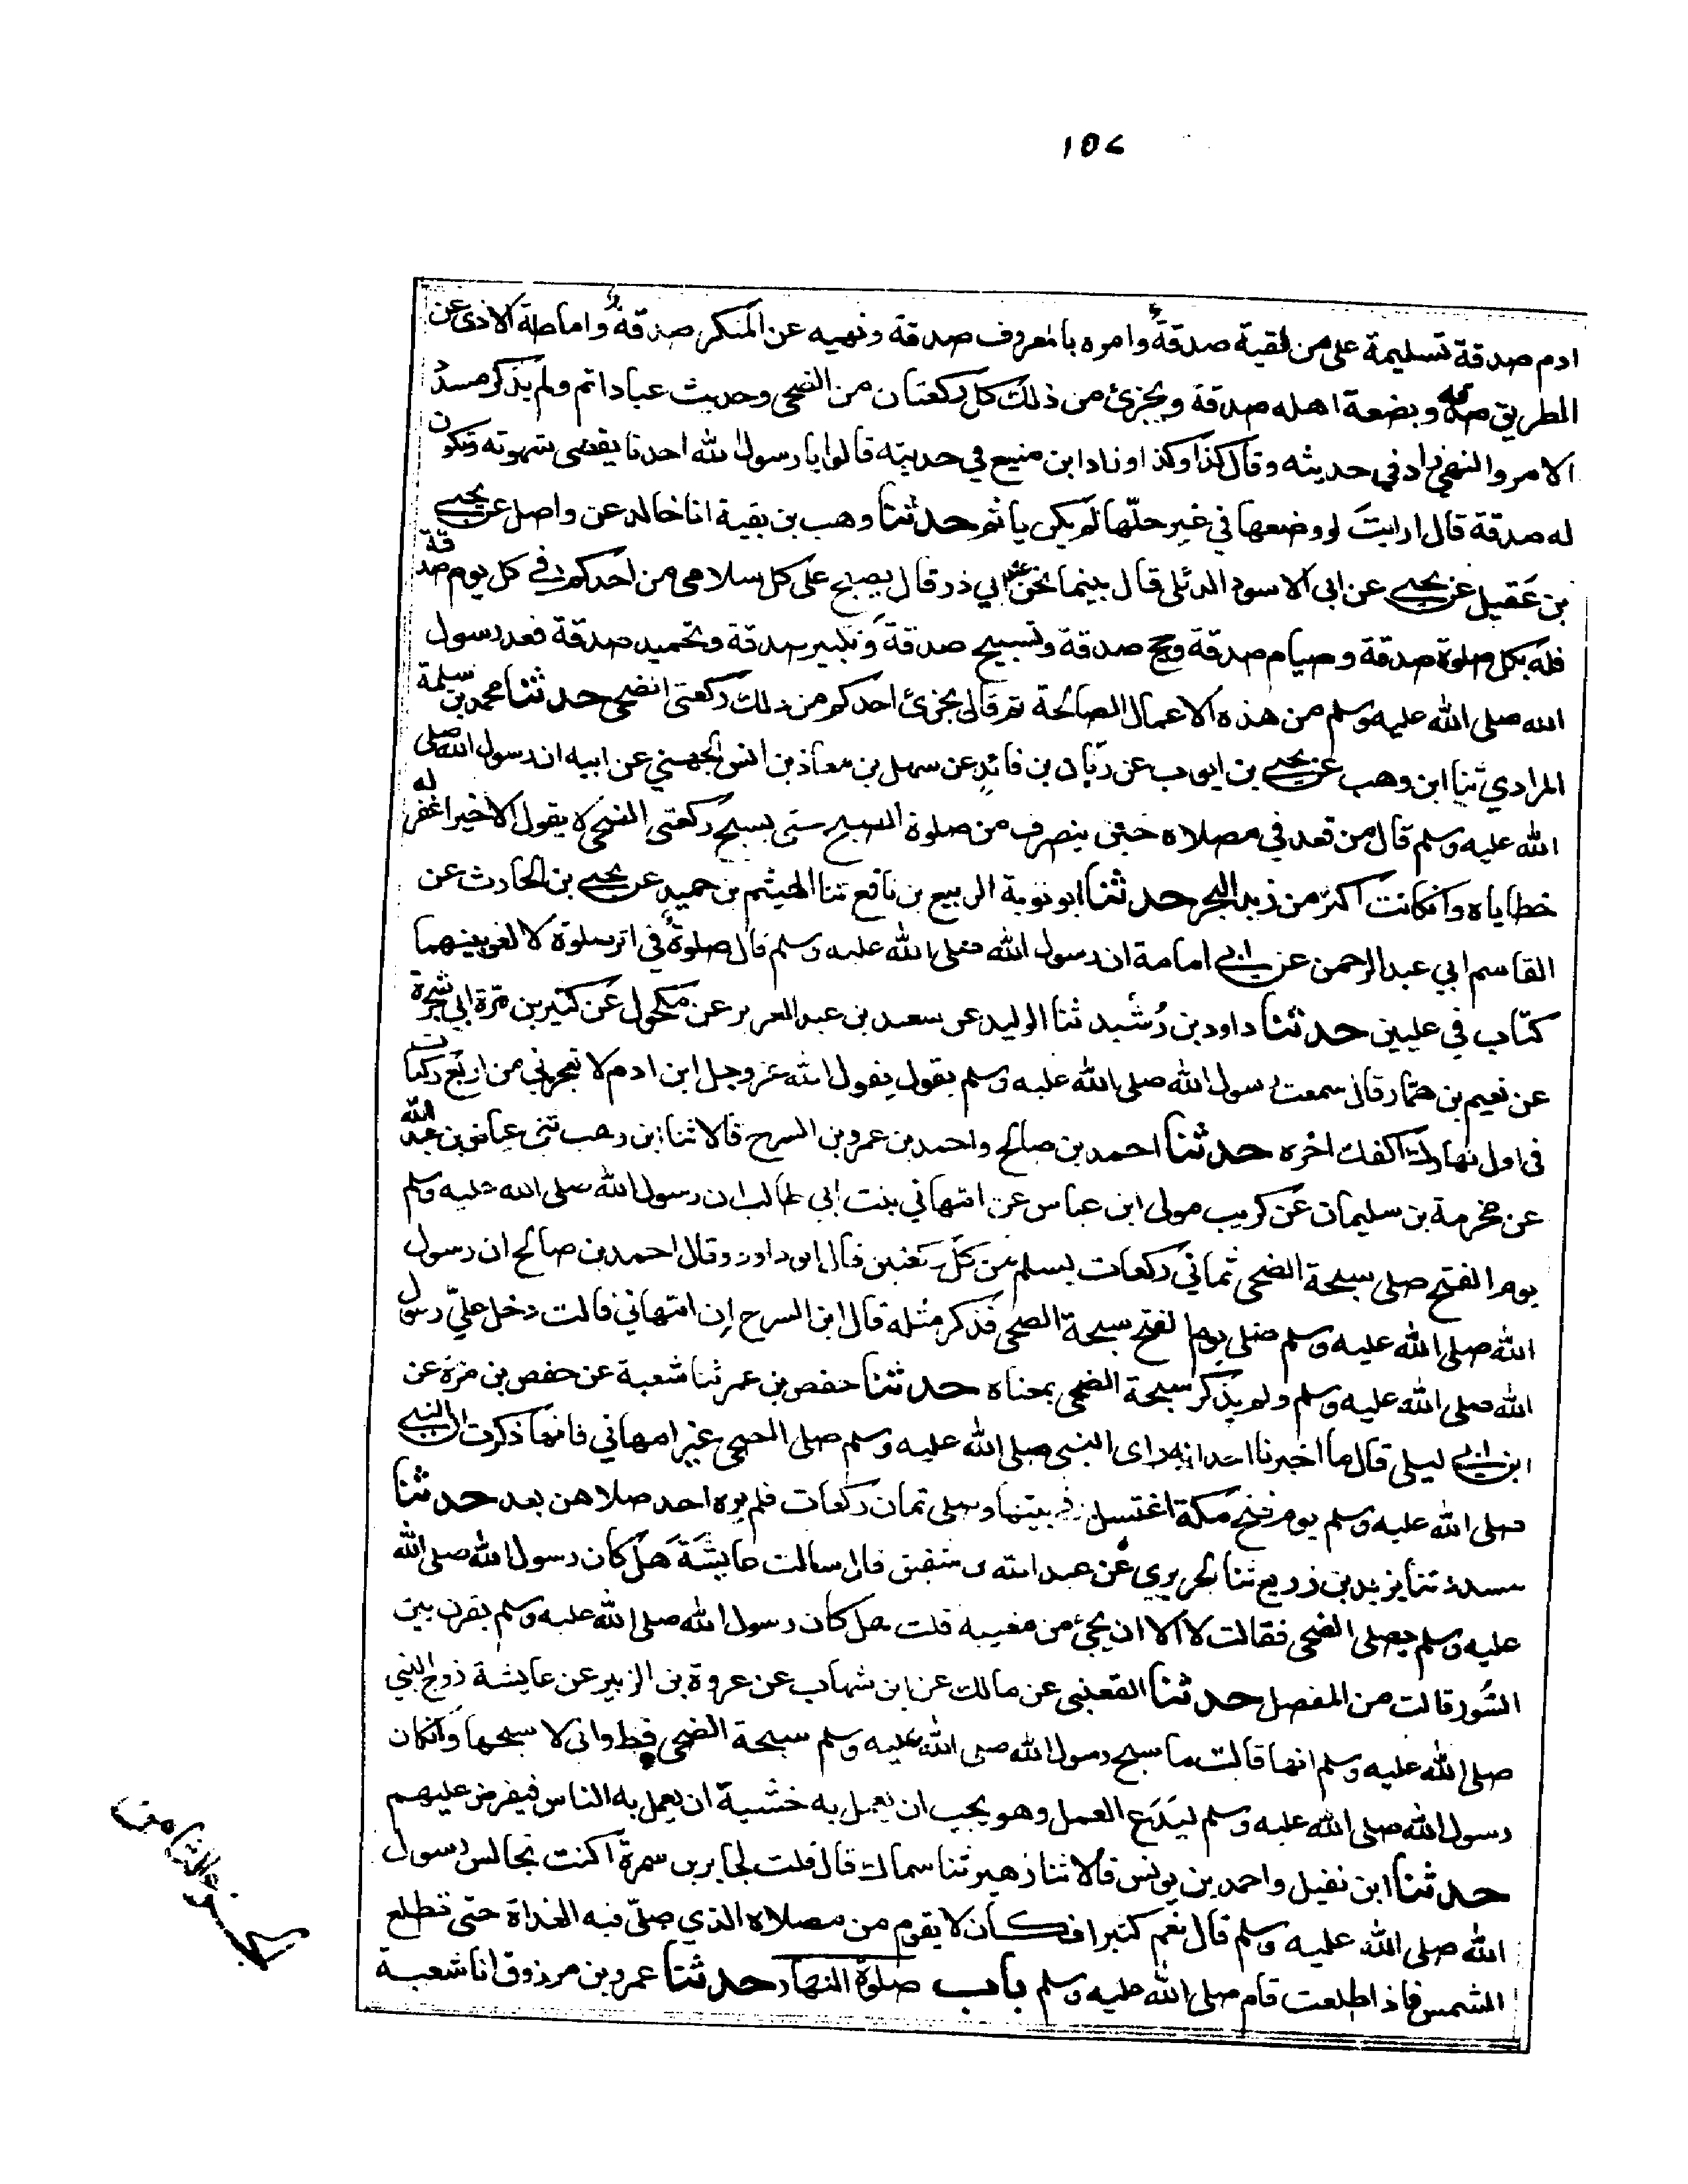 ١٥٢
ادم صدقة تسليمة على من لقية صدقةٌ وامره بالمعروف صدقة ونهيه عن المنكر صدقةٌ واماطة الاذى عن
الطريق صدقه وبضعة اهله صدقة ويجزئ من ذلك كل ركعتان من الضحى وحديث عباد اتم ولم يذكر مسددٌ
الامر والنهي زاد في حديثه وقال كذا وكذا وزاد ابن منيع في حديثه قالوا يا رسول الله احدنا يقضى شهوته وتكون
له صدقة قال ارايتَ لو وضعها في غير حلّها لم يكن ياثم حدثنا وهب بن بقية انا خالد عن واصل عن يحيى
بن عَقيل عن يحيى عن ابى الاسود الدئلى قال بينما نحن عند ابي ذر قال يصبح على كل سلامى من احدكم في كل يوم صدقة
فله بكل صلوة صدقة وصيام صدقة وحج صدقة وتسبيح صدقة وتكبير صدقة وتحميد صدقة فعد رسول
الله صلى الله عليه وسلم من هذه الاعمال الصالحة ثم قال يجزئ احدكم من ذلك ركعتى الضحى حدثنا محمد بن سلمة
المرادي ثنا ابن وهب عن يحيى بن ايوب عن زبّان بن فائدٍ عن سهل بن معاذ بن انس الجهني عن ابيه ان رسول الله صلى
الله عليه وسلم قال من قعد في مصلاه حين ينصرف من صلوة الصبح حتى يسبح ركعتى الضحى لا يقول الا خيرا غفر له
خطاياه وان كانت اكثر من زبد البحر حدثنا ابو توبة الربيع بن نافع ثنا الهيثم بن حميد عن يحيى بن الحارث عن
القاسم ابي عبد الرحمن عن ابى امامة ان رسول الله صلى الله عليه وسلم قال صلوةٌ في اثر صلوة لا لغو بينهما
كتاب في عليين حدثنا داود بن رُشيد ثنا الوليد عن سعيد بن عبد العزيز عن مكحول عن كثير بن مرة ابي شجرة
عن نعيم بن همّار قال سمعت رسول الله صلى الله عليه وسلم يقول يقول الله عز وجل ابن ادم لا تعجزني من اربع ركعات
فى اول نهارك اكفك اخره حدثنا احمد بن صالح واحمد بن عمرو بن السرح قالا ثنا ابن وهب ثنى عياض بن عبد الله
عن مخرمة بن سليمان عن كريب مولى ابن عباس عن ام هاني بنت ابي طالب ان رسول الله صلى الله عليه وسلم
يوم الفتح صلى سبحة الضحى ثماني ركعات يسلم من كل ركعتين قال ابو داود وقال احمد بن صالح ان رسول
الله صلى الله عليه وسلم صلى يوم الفتح سبحة الضحى فذكر مثله قال ابن السرح ان ام هاني قالت دخل عليّ رسول
الله صلى الله عليه وسلم ولم يذكر سبحة الضحى بمعناه حدثنا حفص بن عمر ثنا شعبة عن حفص بن مرة عن
ابن ابى ليلى قال ما اخبرنا احد انه راى النبى صلى الله عليه وسلم صلى الضحى غير ام هاني فانها ذكرت ان النبى
صلى الله عليه وسلم يوم فتح مكة اغتسل في بيتها وصلى ثمان ركعات فلم يره احد صلاهن بعد حدثنا
مسدد ثنا يزيد بن زريع ثنا الجريري عن عبد الله بن شقيق قال سالت عايشة هل كان رسول الله صلى الله
عليه وسلم يصلى الضحى فقالت لا الا ان يجئ من مغيبه قلت هل كان رسول الله صلى الله عليه وسلم يقرن بين
السُور قالت من المفصل حدثنا القعنبى عن مالك عن ابن شهاب عن عروة بن الزبير عن عايشة زوج النبي
صلى الله عليه وسلم انها قالت ما سبح رسول الله صلى الله عليه وسلم سبحة الضحى قط وانى لا سبحها وان كان
رسول الله صلى الله عليه وسلم ليَدَع العمل وهو يحب ان يعمل به خشية ان يعمل به الناس فيفرض عليهم
حدثنا ابن نفيل واحمد بن يونس قالا ثنا زهير ثنا سماك قال قلت لجابر بن سمرة اكنت تجالس رسول
الله صلى الله عليه وسلم قال نعم كثيرا فكان لا يقوم من مصلاه الذي صلّى فيه الغداة حتى تطلع
الشمس فاذا طلعت قام صلى الله عليه وسلم باب صلوة النهار حدثنا عمرو بن مرزوق انا شعبة
الجزء الثامن